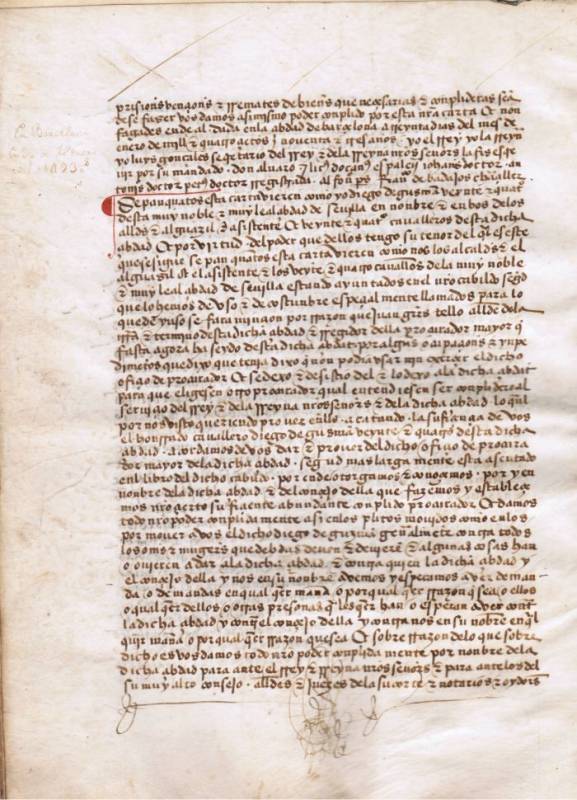 prisiones venções & rremates de bienes que necesarias & conplideras seã
de se faser vos damos asimismo poder conplido por esta nrã carta & non
fagades ende al dada en la çibdad de barçelona a treynta dias del mes de
enero de mill & quatroçientos & noventa & tres años yo el rrey yo la rreyna
yo luys gonçales secretario del rrey & de la rreyna nros señores la fis escre
uir por su mandado don aluaro liçẽ doctor johans doctor an
tonius doctor petrus doctor rregistrada alfonso peres françisco de badajos chançiller
Sepan quantos esta carta vieren como yo diego de gusman veynte & quatro
desta muy noble & muy leal çibdad de seuilla en nonbre & en bos de los
alldes & alguazil & asistente & veynte & quatro caualleros desta dicha
çibdad & por virtud del poder que dellos tengo su tenor del ql es este
que se sigue sepan quantos esta carta vieren como nos los alcaldes & el
alguazil & el asistente & los veynte & quatro caualleros de la muy noble
& muy leal çibdad de seuilla estando ayuntados en el nro cabildo segũd
que lo hemos de vso & de costunbre espeçial mente llamados para lo
que de yuso se fara minçion por rrazon que juan grrs tello allde de la
trra & termino desta dicha çibdad & rregidor della procurador mayor q̃
fasta agora ha seydo desta dicha çibdad por algunas ocupaçiones & ynpe
dimentos que dixo que tenia dixo q̃ non podia vsar nin exerçer el dicho
ofiçio de procurador & se dexo & desistio del & lo dexo a la dicha çibdad
para que eligesen otro procurador qual entendiesen ser conplidero al
seruiçio del rrey & de la rreyna nros señores & de la dicha çibdad lo qual
por nos visto queriendo proueer en ello acatando la sufiçiençia de vos
el honrrado cauallero diego de gusman veynte & quatro desta dicha
çibdad acordamos de vos dar & proueer del dicho ofiçio de procura
dor mayor de la dicha çibdad segũd mas larga mente esta asentado
en el libro del dicho cabildo por ende otorgamos & conoçemos por y en
nonbre de la dicha çibdad & del conçejo della que fazemos y estableçe
mos nro çierto sufiçiente abundante conplido procurador & damos
todo nro poder conplida mente asi en los pleitos mouidos como en los
por mouer a vos el dicho diego de guzman general mente contra todos
los omes & mugeres que debdas deuen & deuieren & algunas cosas han
o ouieren a dar a la dicha çibdad & contra quien la dicha çibdad y
el conçejo della y nos en su nonbre avemos y esperamos aver deman
da o demandas en qual quier manera o por qual quier rrazon q̃ sea o ellos
o qual quier dellos o otras personas q̃les quier han o esperan aver contra
la dicha çibdad y contra el conçejo della y contra nos en su nonbre en ql
quier manera o por qual quier rrazon que sea & sobre rrazon de lo que sobre
dicho es vos damos todo nro poder conplida mente por nonbre de la
dicha çibdad para ante el rrey & rreyna nros señores & para ante los del
su muy alto consejo alldes & jueces de la su corte & notarios & oydores